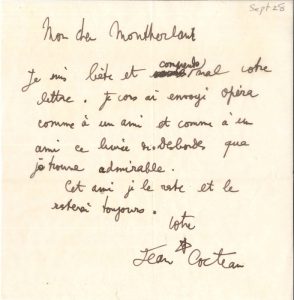 Sept 28
Mon cher Montherlant
Je suis bête et comprends mal votre
lettre. Je vous ai envoyé Opéra
comme à un ami et comme à un
ami ce livre de Desbordes que
je trouve admirable.
Cet ami je le reste et le
resterai toujours.
votre
Jean Cocteau